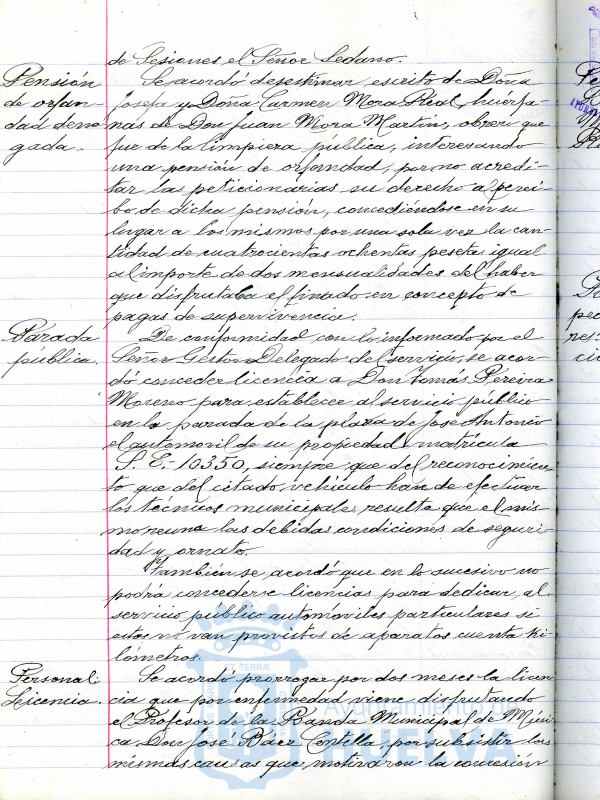 de Sesiones el Señor Ledano.
Pensión
de orfan-
dad dene
gada.
Se acordó desestimar, escrito de Doña
Josefa y Doña Carmen Mora Réal, huérfa-
nas de Don Juan Mora Martin, obrero que
fue de la limpiera pública, interesando
una pensión de orfandad, por no acredi-
tar las peticionarias su derecho al perci-
bo de dicha pensión, concediéndose en su
lugar a los mismos por una sola vez la can-
tidad de cuatrocientas ochentas pesetas igual
al importe de dos mensualidades del haber
que disfrutaba el finado en concepto de
pagas de supervivencia.
Parada
pública.
De conformidad con lo informado por el
Señor Gestor Delegado del servicio, se acor-
dó conceder licencia a Don Tomás Pereira
Moreno para establecer al servicio público
en la parada de la plaza de Jose Antonio
el automovil de su propiedad matrícula
S.E.-10350, siempre que del reconocimien-
to que del citado vehículo han de efectuar
los técnicos municipales resulte que el mis-
mo reuna las debidas condiciones de seguri-
dad y ornato.
También se acordó que en lo sucesivo no
podrá concederse licencias para dedicar al
servicio público automóviles particulares si
estos no van provistos de aparatos cuenta ki-
lómetros.
Personal
Licencia.
Se acordó prorrogar por dos meses la licen-
cia que por enfermedad viene disfrutando
el Profesor de la Banda Municipal de Músi-
ca Don José Báez Contella, por subsistir las
mismas causas que motivaron la concesión
Ayuntamiento de
HUELVA